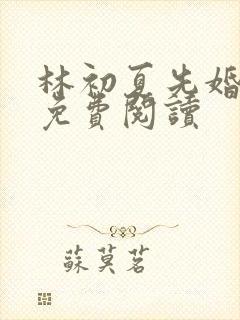 林初夏先婚
免費閱讀
蘇莫茗